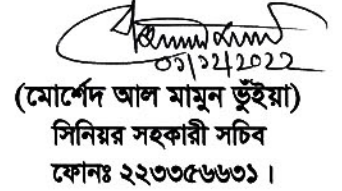 ০১/১২/২০২২
(মোর্শেদ আল মামুন ভুঁইয়া)
সিনিয়র সহকারী সচিব
ফোনঃ ২২৩৩৫৬৬৩১।